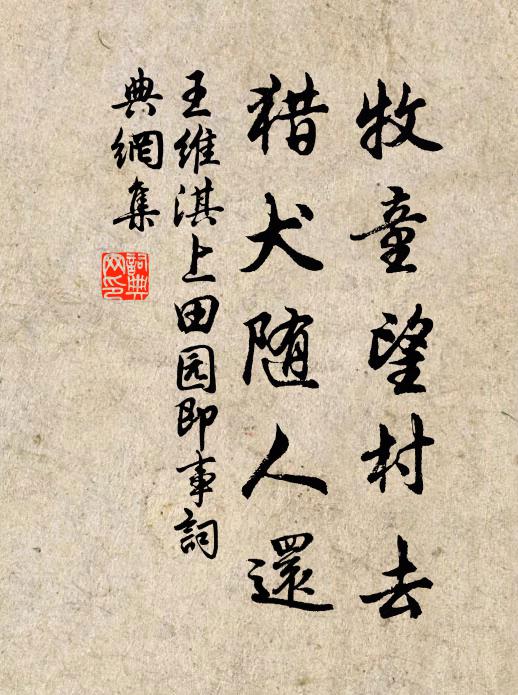 牧童望村去
猎犬随人還
王維淇上田园即事詞
典網集
詞典网印